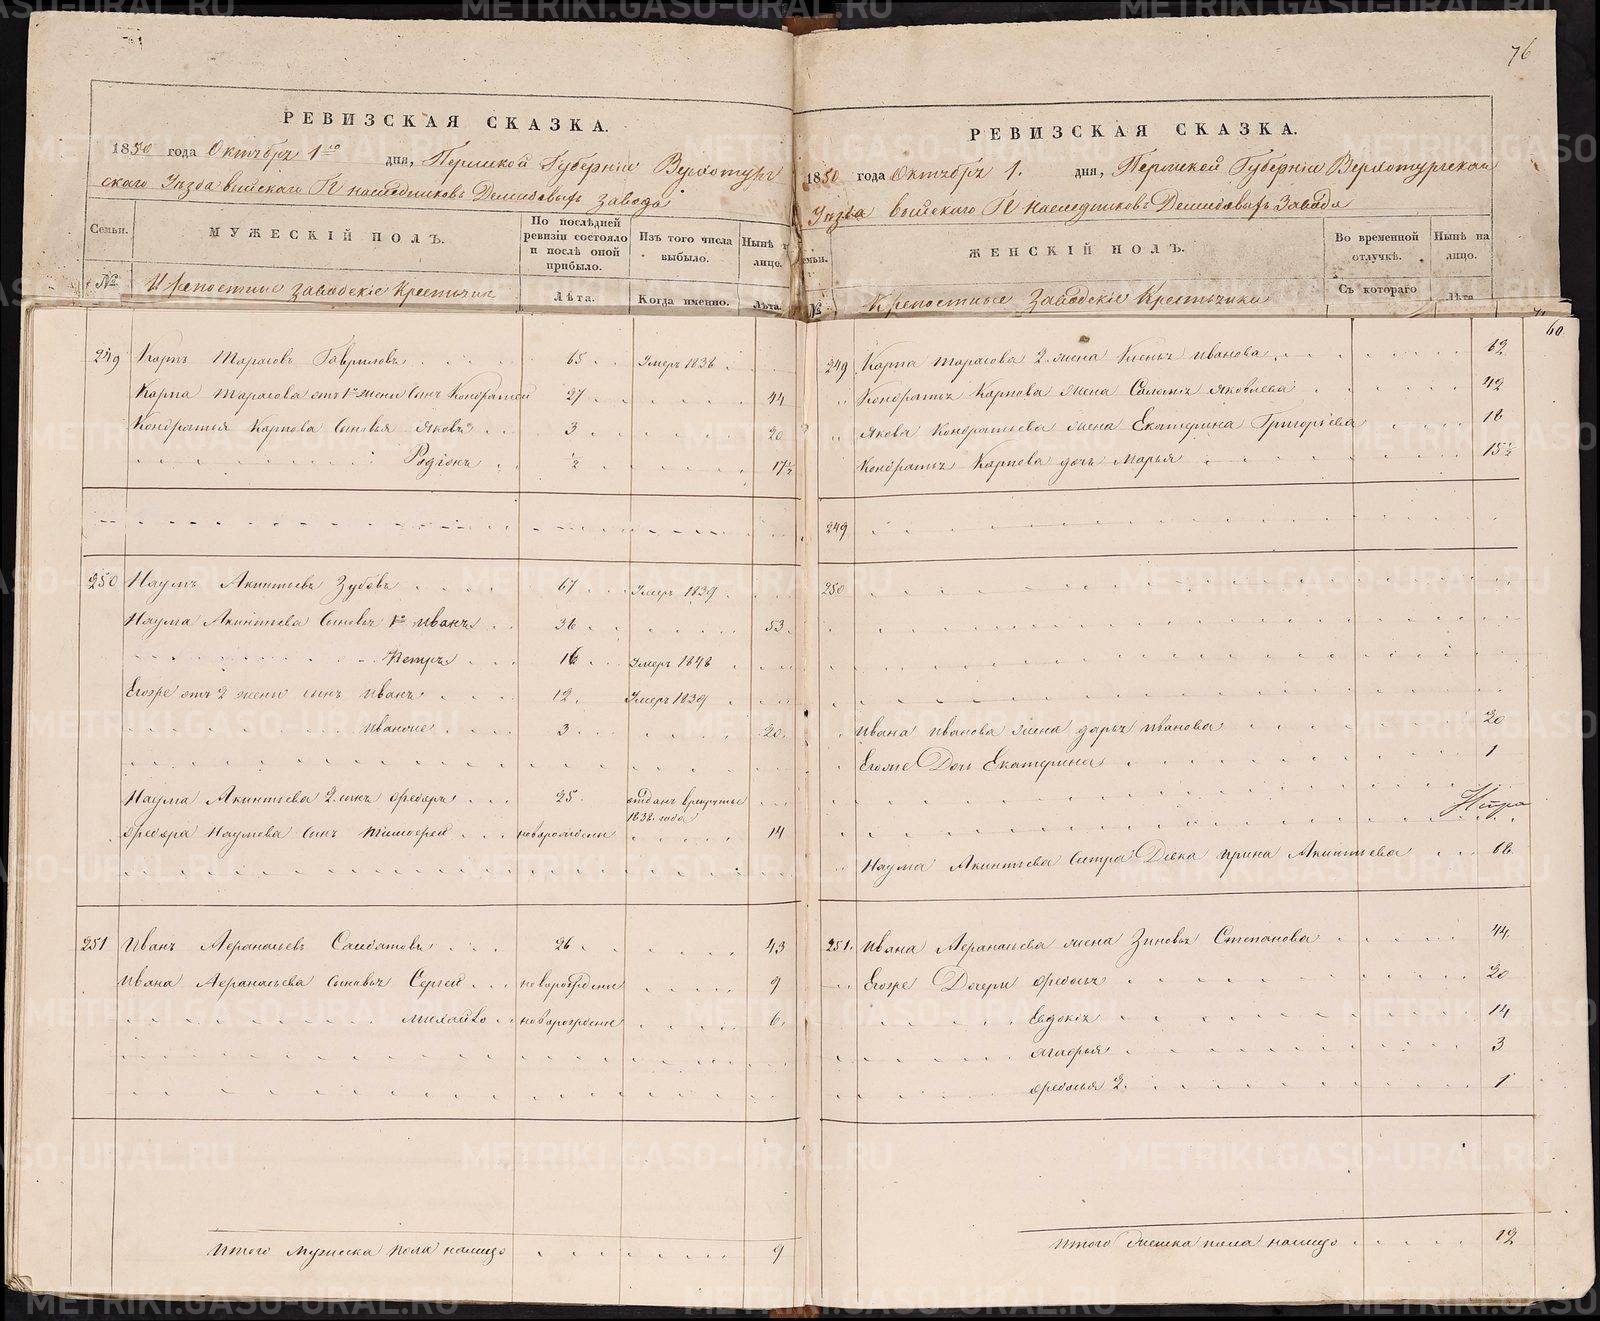 РЕВИЗСКАЯ СКАЗКА.
1850 года Октябрь 1го дня, Пермской Губернiи Верхотур
скаго Уезда Выйскаго Г. наследниковъ Демидовыхъ завода
Семьи.
МУЖЕСКIЙ ПОЛЪ.
По послѣдней ревизiи состояло и послѣ оной прибыло.
Изъ того числа выбыло.
Нынѣ
лицо.
№
Крепостные заводскiе Крестьяне
Лѣта.
Когда именно.
Лѣта.
249 Карпъ Тарасовъ Гавриловъ 65 Умеръ 1838
Карпа Тарасова отъ 1й жены сынъ Кондратей 27 44
Кондратья Карпова сыновья Яковъ 3 20
Родiонъ ½ 17½
250 Наумъ Акинтьевъ Зубовъ 67 Умеръ 1839
Наума Акинтьева сыновья 1й Иванъ 36 53
Петръ 16 Умеръ 1848
Егоже отъ 2 жены сынъ Иванъ 12 Умеръ 1839
3 20
Наума Акинтьева 2 сынъ Федоръ 25 отданъ врекруты
1838 года
Федора Наумова сынъ Тимофей новорожденъ 14
251 Иванъ Афанасьевъ Солдатовъ 26 43
Ивана Афанасьева сыновья Сергей новорожденъ 9
Михайло новорожденъ 6
Итого Мужеска пола налицо 9
76
РЕВИЗСКАЯ СКАЗКА.
1850 года Октября 1. дня, Пермской Губернiи Верхотурскаго
Уезда Выйскаго Г. Наследниковъ Демидовыхъ Завода
емьи.
ЖЕНСКIЙ ПОЛЪ.
Во временной отлучкѣ.
Нынѣ на лицо.
№
Крепостные Заводскiе Крестьянки
Съ котораго
Лѣта
60
249 Карпа Тарасова 2. жена Ксенья Иванова 62
Кондратья Карпова жена Саломiя Яковлева 42
Якова Кондратьева жена Екатерина Григорiева 18
Кондратья Карпова дочь Марья 15½
249
250
Ивана Иванова жена Дарья Иванова 20
Егоже Дочь Екатерина 1
Наума Акинтьева сестра Девка Ирина Акинтьева 68
251. Ивана Афанасьева жена Зиновья Степанова 44
Егоже Дочери Федосья 20
Евдокiя 14
Агафья 3
Федосья 2. 1
Итого Женска пола налицо 12
METRIKI.GASO-URAL.RU